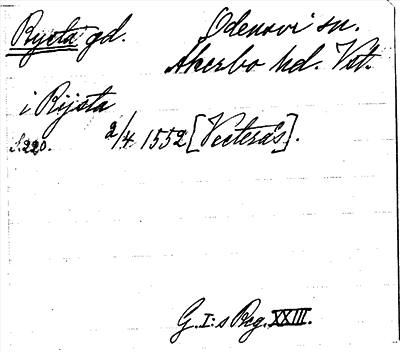 Rysta gd. Odensvi sn.
Åkerbo hd. Vst.
i Rijsta
s. 220. 2/4 1552 [Vesterås].
G. I:s Reg. XXIII.